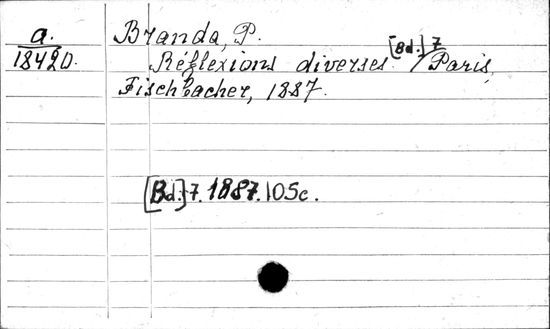 a.
18420.
Branda, P.
Réflexions diverses. [Bd.] 7 / Paris,
Fischbacher, 1887.
[Bd.] 7. 1887. 105c.